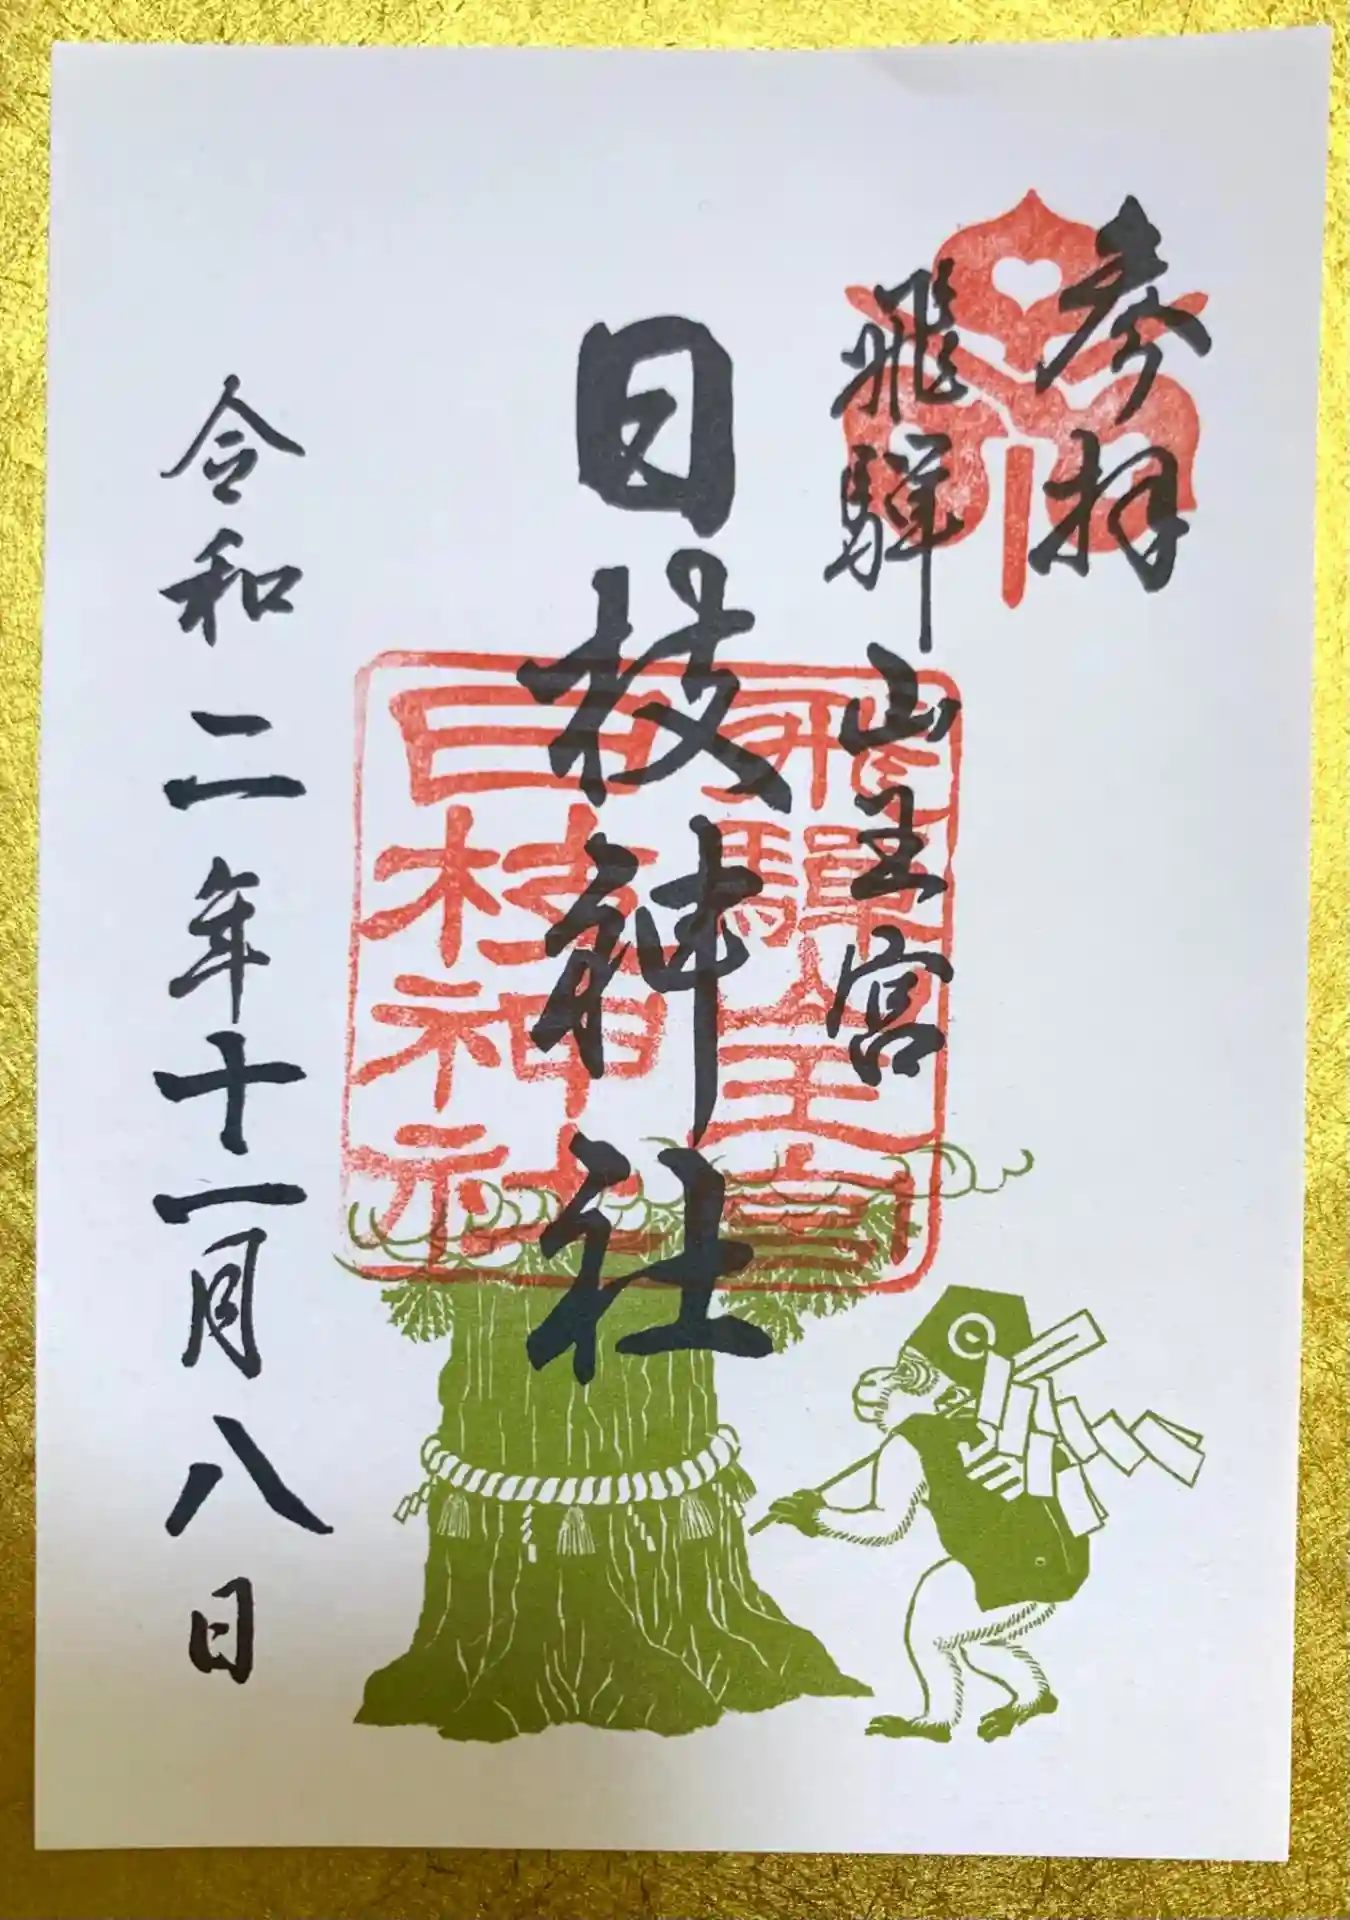 参拝
飛騨山王宮
日枝神社
飛騨山王宮
日枝神社
令和二年十一月八日